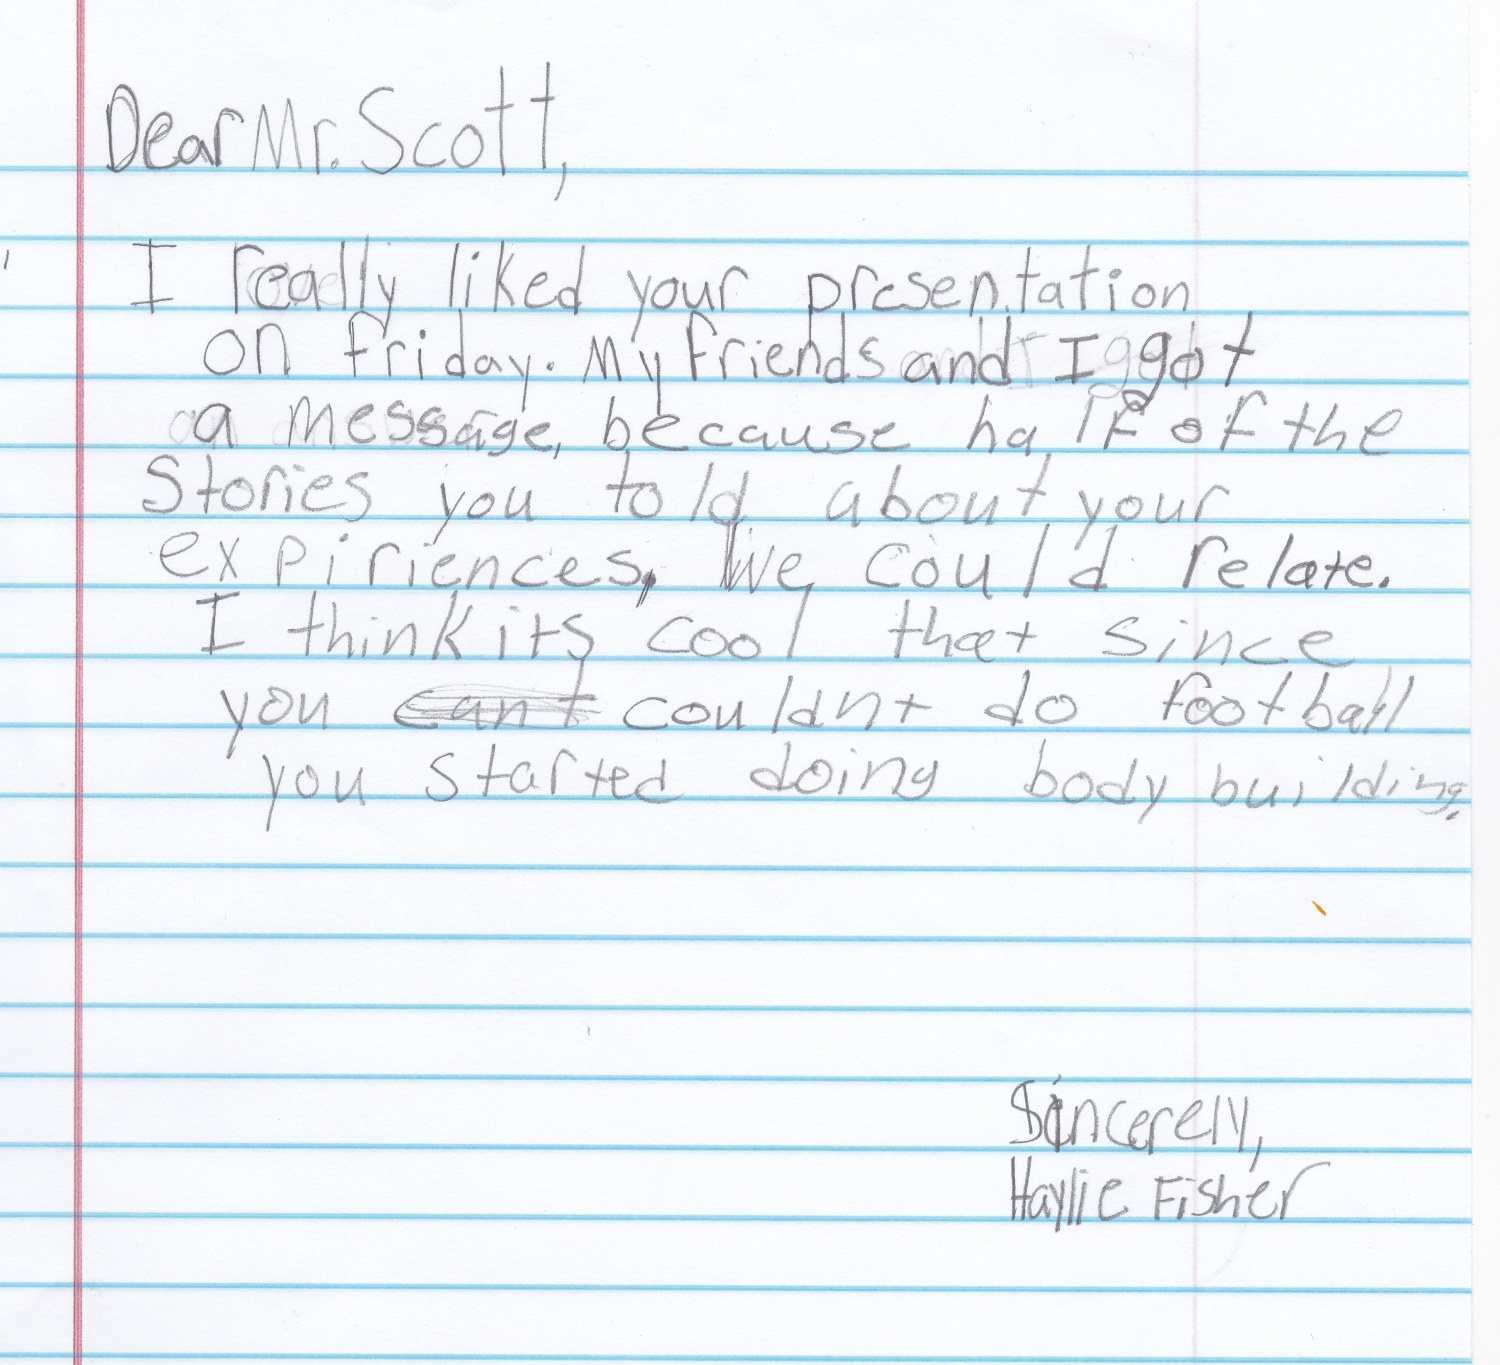 Dear Mr. Scott,
I really liked your presentation
on friday. My friends and I got
a message, because half of the
Stories you told about your
expiriences, we could relate.
I think its cool that since
you cant couldnt do football
you started doing body building.
Sincerely,
Haylie Fisher